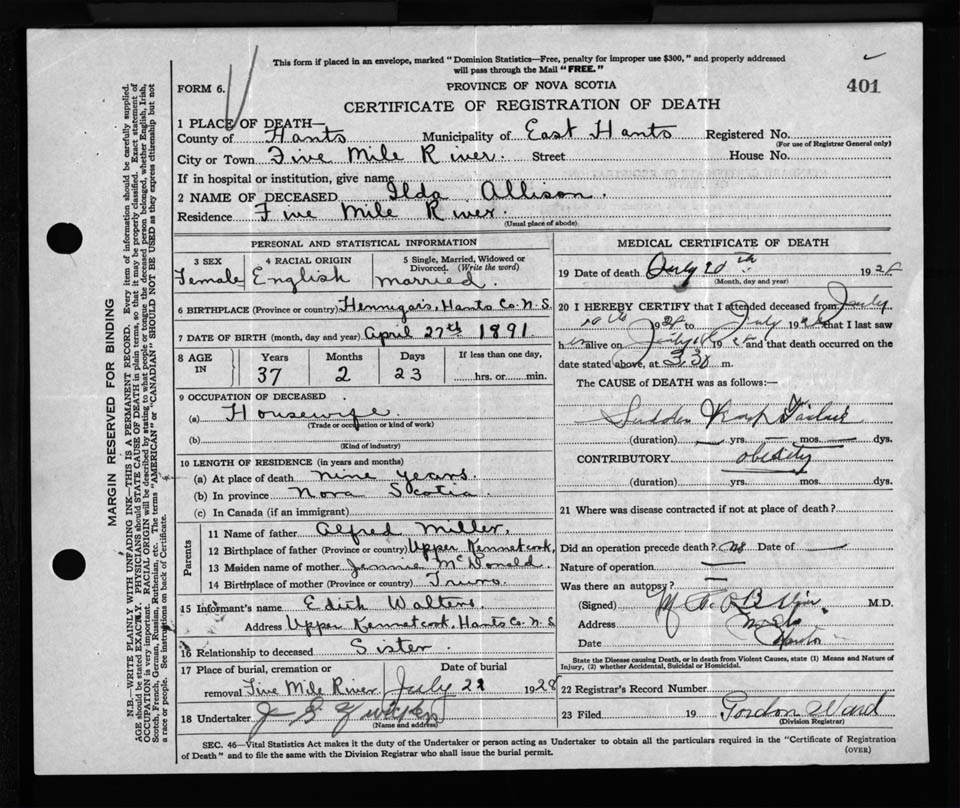 This form if placed in an envelope, marked "Dominion Statistics—Free, penalty for improper use $300," and properly addressed
will pass through the Mail "FREE."
FORM 6.
PROVINCE OF NOVA SCOTIA
401
CERTIFICATE OF REGISTRATION OF DEATH
1 PLACE OF DEATH—
County of Hants Municipality of East Hants Registered No.
(For use of Registrar General only)
City or Town Five Mile River. Street House No.
If in hospital or institution, give name
2 NAME OF DECEASED Ilda Allison.
Residence Five Mile River.
(Usual place of abode)
PERSONAL AND STATISTICAL INFORMATION
3 SEX
Female
4 RACIAL ORIGIN
English
5 Single, Married, Widowed or Divorced. (Write the word)
Married.
6 BIRTHPLACE (Province or country) Hennigars, Hants Co. N.S.
7 DATE OF BIRTH (month, day and year) April 27th 1891.
8 AGE IN
Years Months Days If less than one day,
37 2 23 hrs. or min.
9 OCCUPATION OF DECEASED
(a) Housewife.
(Trade or occupation or kind of work)
(b)
(Kind of industry)
10 LENGTH OF RESIDENCE (in years and months)
(a) At place of death nine years.
(b) In province Nova Scotia.
(c) In Canada (if an immigrant)
Parents
11 Name of father Alfred Miller,
12 Birthplace of father (Province or country) Upper Kennetcook,
13 Maiden name of mother Jennie McDonald.
14 Birthplace of mother (Province or country) Truro.
15 Informant's name Edith Walters
Address Upper Kennetcook, Hants Co. N.S
16 Relationship to deceased Sister.
17 Place of burial, cremation or removal Five Mile River
Date of burial
July 22 1928
18 Undertaker
(Name and address)
MEDICAL CERTIFICATE OF DEATH
19 Date of death July 20th 1928
(Month, day and year)
20 I HEREBY CERTIFY that I attended deceased from July
1928 to July 1928 that I last saw
her alive on July 1928 and that death occurred on the
date stated above, at 3.30 m.
The CAUSE of DEATH was as follows:—
Sudden Heart Failure
(duration) — yrs. — mos. — dys.
CONTRIBUTORY obesity
(duration) yrs. mos. dys.
21 Where was disease contracted if not at place of death?
Did an operation precede death? no Date of —
Nature of operation —
Was there an autopsy? —
(Signed) M.D.
Address
Date
State the Disease causing Death, or in death from Violent Causes, state (1) Means and Nature of
Injury, (2) whether Accidental, Suicidal or Homicidal.
22 Registrar's Record Number
23 Filed 19 Gordon Ward
(Division Registrar)
SEC. 46—Vital Statistics Act makes it the duty of the Undertaker or person acting as Undertaker to obtain all the particulars required in the "Certificate of Registration
of Death" and to file the same with the Division Registrar who shall issue the burial permit.
(OVER)
MARGIN RESERVED FOR BINDING
N.B.—WRITE PLAINLY WITH UNFADING INK—THIS IS A PERMANENT RECORD. Every item of information should be carefully supplied.
AGE should be stated EXACTLY. PHYSICIANS should STATE CAUSE OF DEATH in plain terms, so that it may be properly classified. Exact statement of
OCCUPATION is very important. RACIAL ORIGIN will be described by stating to what people or tongue the deceased person belonged, whether English, Irish,
Scotch, French, German, Russian, Ruthenian, etc. The terms "AMERICAN" or "CANADIAN" SHOULD NOT BE USED as they express citizenship but not
a race or people. See instructions on back of Certificate.